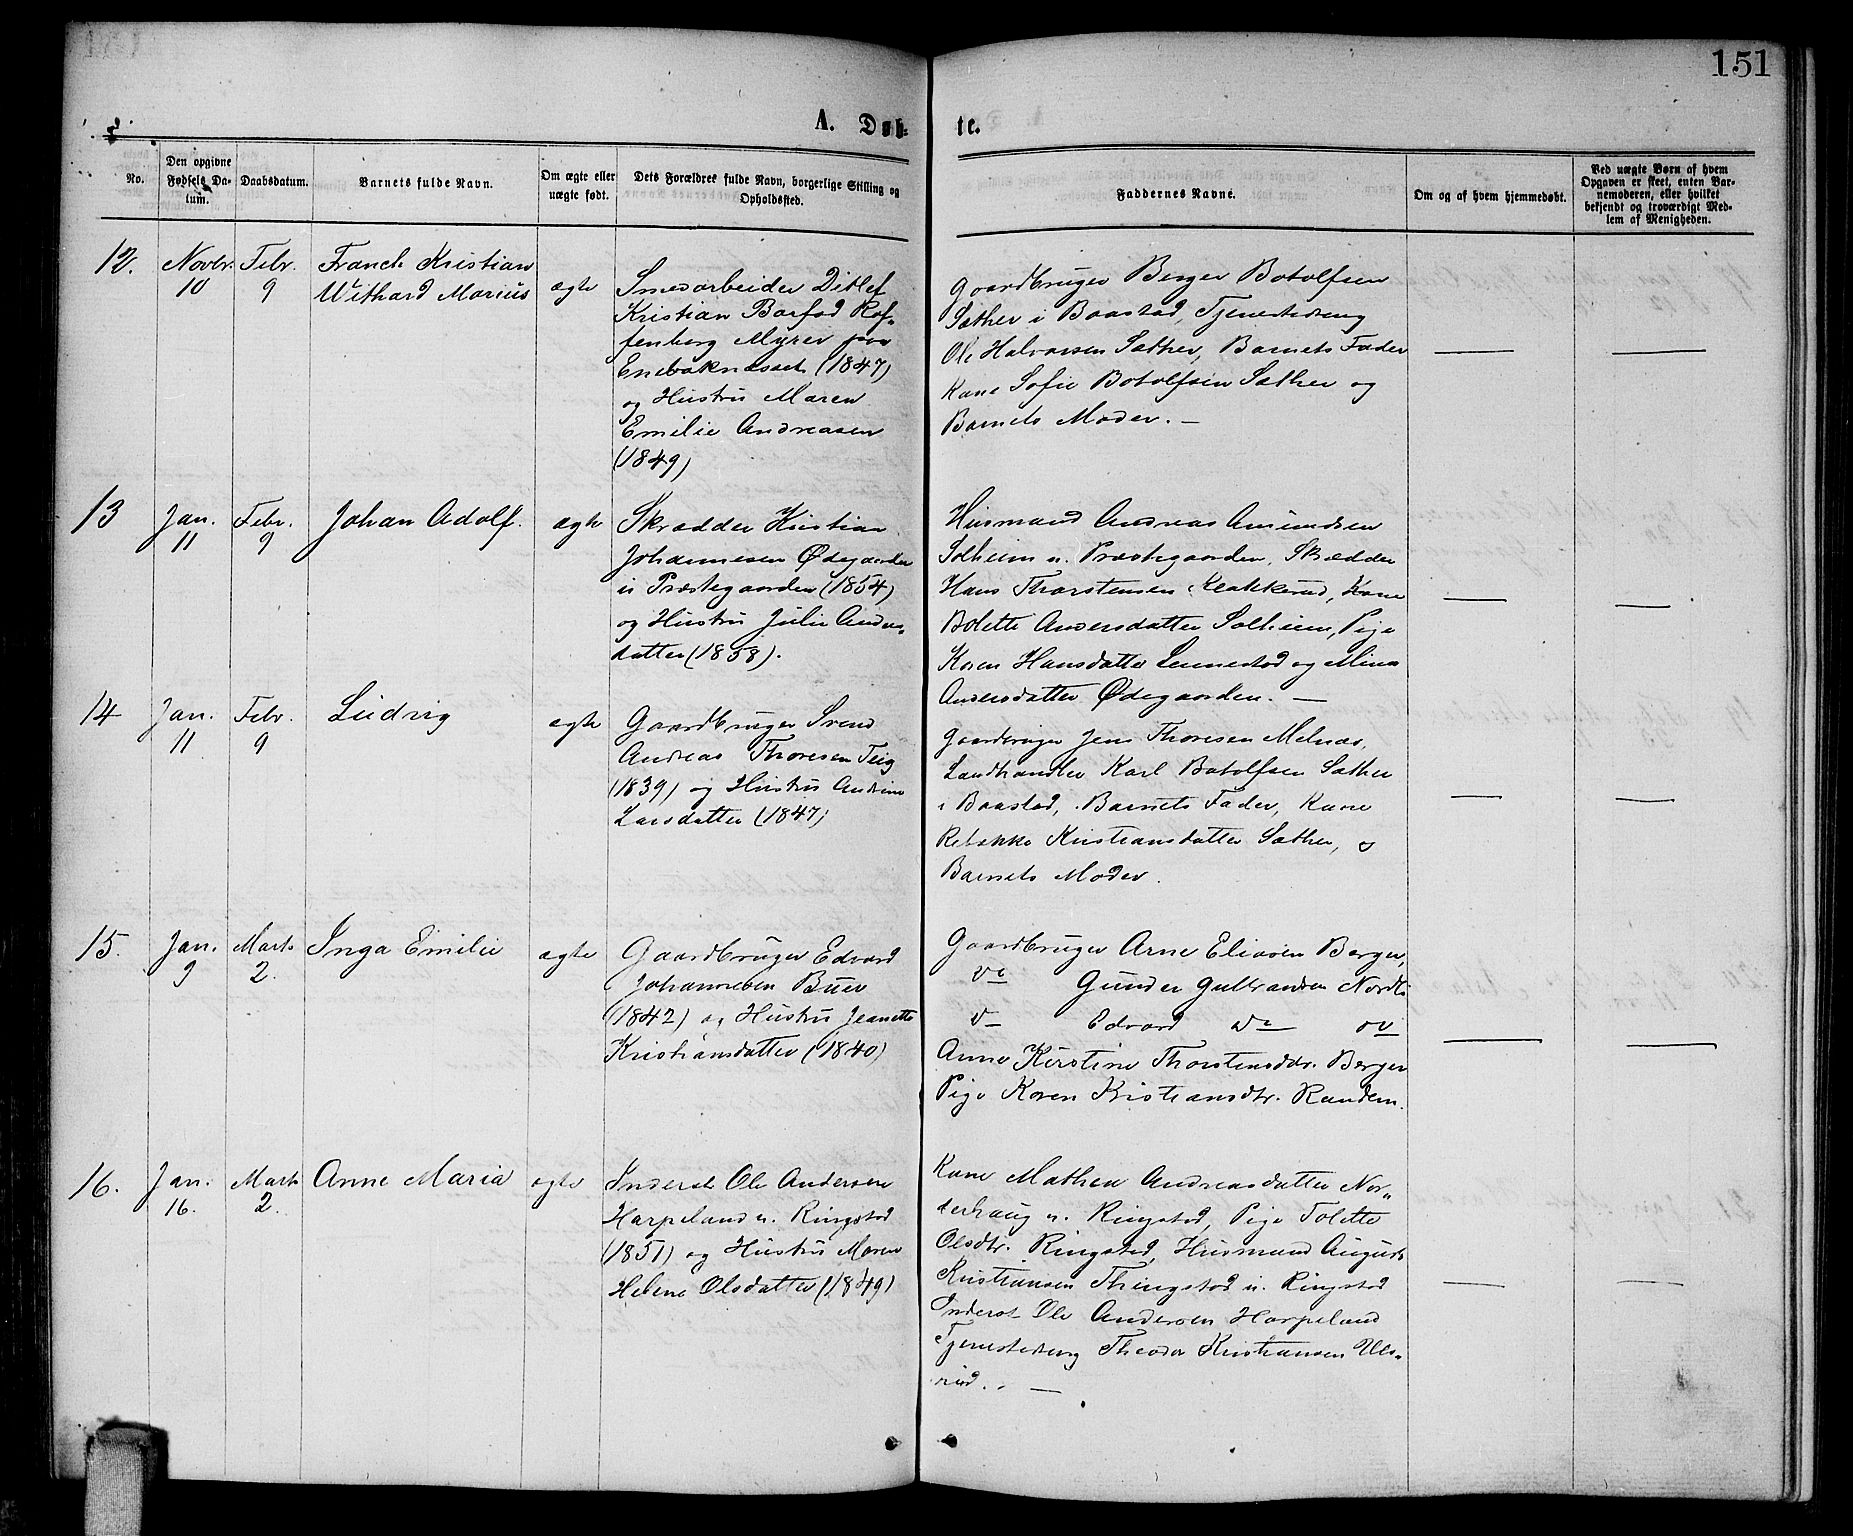 151
A. Døb-
te.
No.
Den opgivne
Fødsels Da-
tum.
Daabsdatum.
Barnets fulde Navn.
Om ægte eller
uægte født.
Dets Forældres fulde Navn, borgerlige Stilling og
Opholdssted.
Faddernes Navne.
Om og af hvem hjemmedøbt.
Ved uægte Børn af hvem
Opgaven er skeet, enten Bar-
nemoderen, eller hvilket
bekjendt og troværdigt Med-
lem af Menigheden.
12.
Novbr.
10
Febr.
9
Franck Kristian
Withard Marius
ægte
Smedarbeider Ditlef
Kristian Barfod Rof-
fenberg Myrer paa
Enebaknesset (1847)
og Hustru Maren
Emilie Andreasen
(1849)
Gaardbruger Berger Botolfsen
Sæther i Baastad, Tjenestedreng
Ole Halvorsen Sæther, Barnets Fader
Kone Sofie Botolfsen Sæther og
Barnets Moder. —
13
Jan.
11
Febr.
9
Johan Adolf.
ægte
Skrædder Kristian
Johannesen Ødegaarden
u. Præstegaarden (1854)
og Hustru Julie Anders-
datter (1858).
Husmand Andreas Amundsen
Solheim u. Præstegaarden, Skrædder
Hans Thorstensen Klakkerud, Kone
Bolette Andersdatter Solheim, Pige
Karen Hansdatter Lennestad og Mina
Andersdatter Ødegaarden. —
14
Jan.
11
Febr.
9
Ludvig
ægte
Gaardbruger Svend
Andreas Thoresen Teig
(1839) og Hustru Andrine
Larsdatter (1847)
Gaardbruger Jens Thoresen Melnæs,
Landhandler Karl Botolfsen Sæther
i Baastad, Barnets Fader, Kone
Rebekka Kristiansdatter Sæther, o
Barnets Moder.
15.
Jan.
9
Marts
2.
Inga Emilie
ægte
Gaardbruger Edvard
Johannesen Buer
(1842) og Hustru Jeanette
Kristiansdatter (1840)
Gaardbruger Arne Eliasen Berger,
Do Gunder Gulbrandsen Nordb
D— Edvard Do — ov
Anne Kirstine Thorstensdtr. Berger
Pige Karen Kristiansdtr. Randem.
16.
Jan.
16.
Marts
2.
Anne Maria
ægte
Inderst Ole Andersen
Harpeland u. Ringstad
(1851) og Hustru Maren
Helene Olsdatter (1849)
Kone Mathea Andreasdatter Nor-
derhaug u. Ringstad, Pige Tolette
Olsdtr. Ringstad, Husmand August
Kristiansen Thingstad u. Ringstad
Inderst Ole Andersen Harpeland
Tjenestedreng Theodor Kristiansen Uls-
rud. —